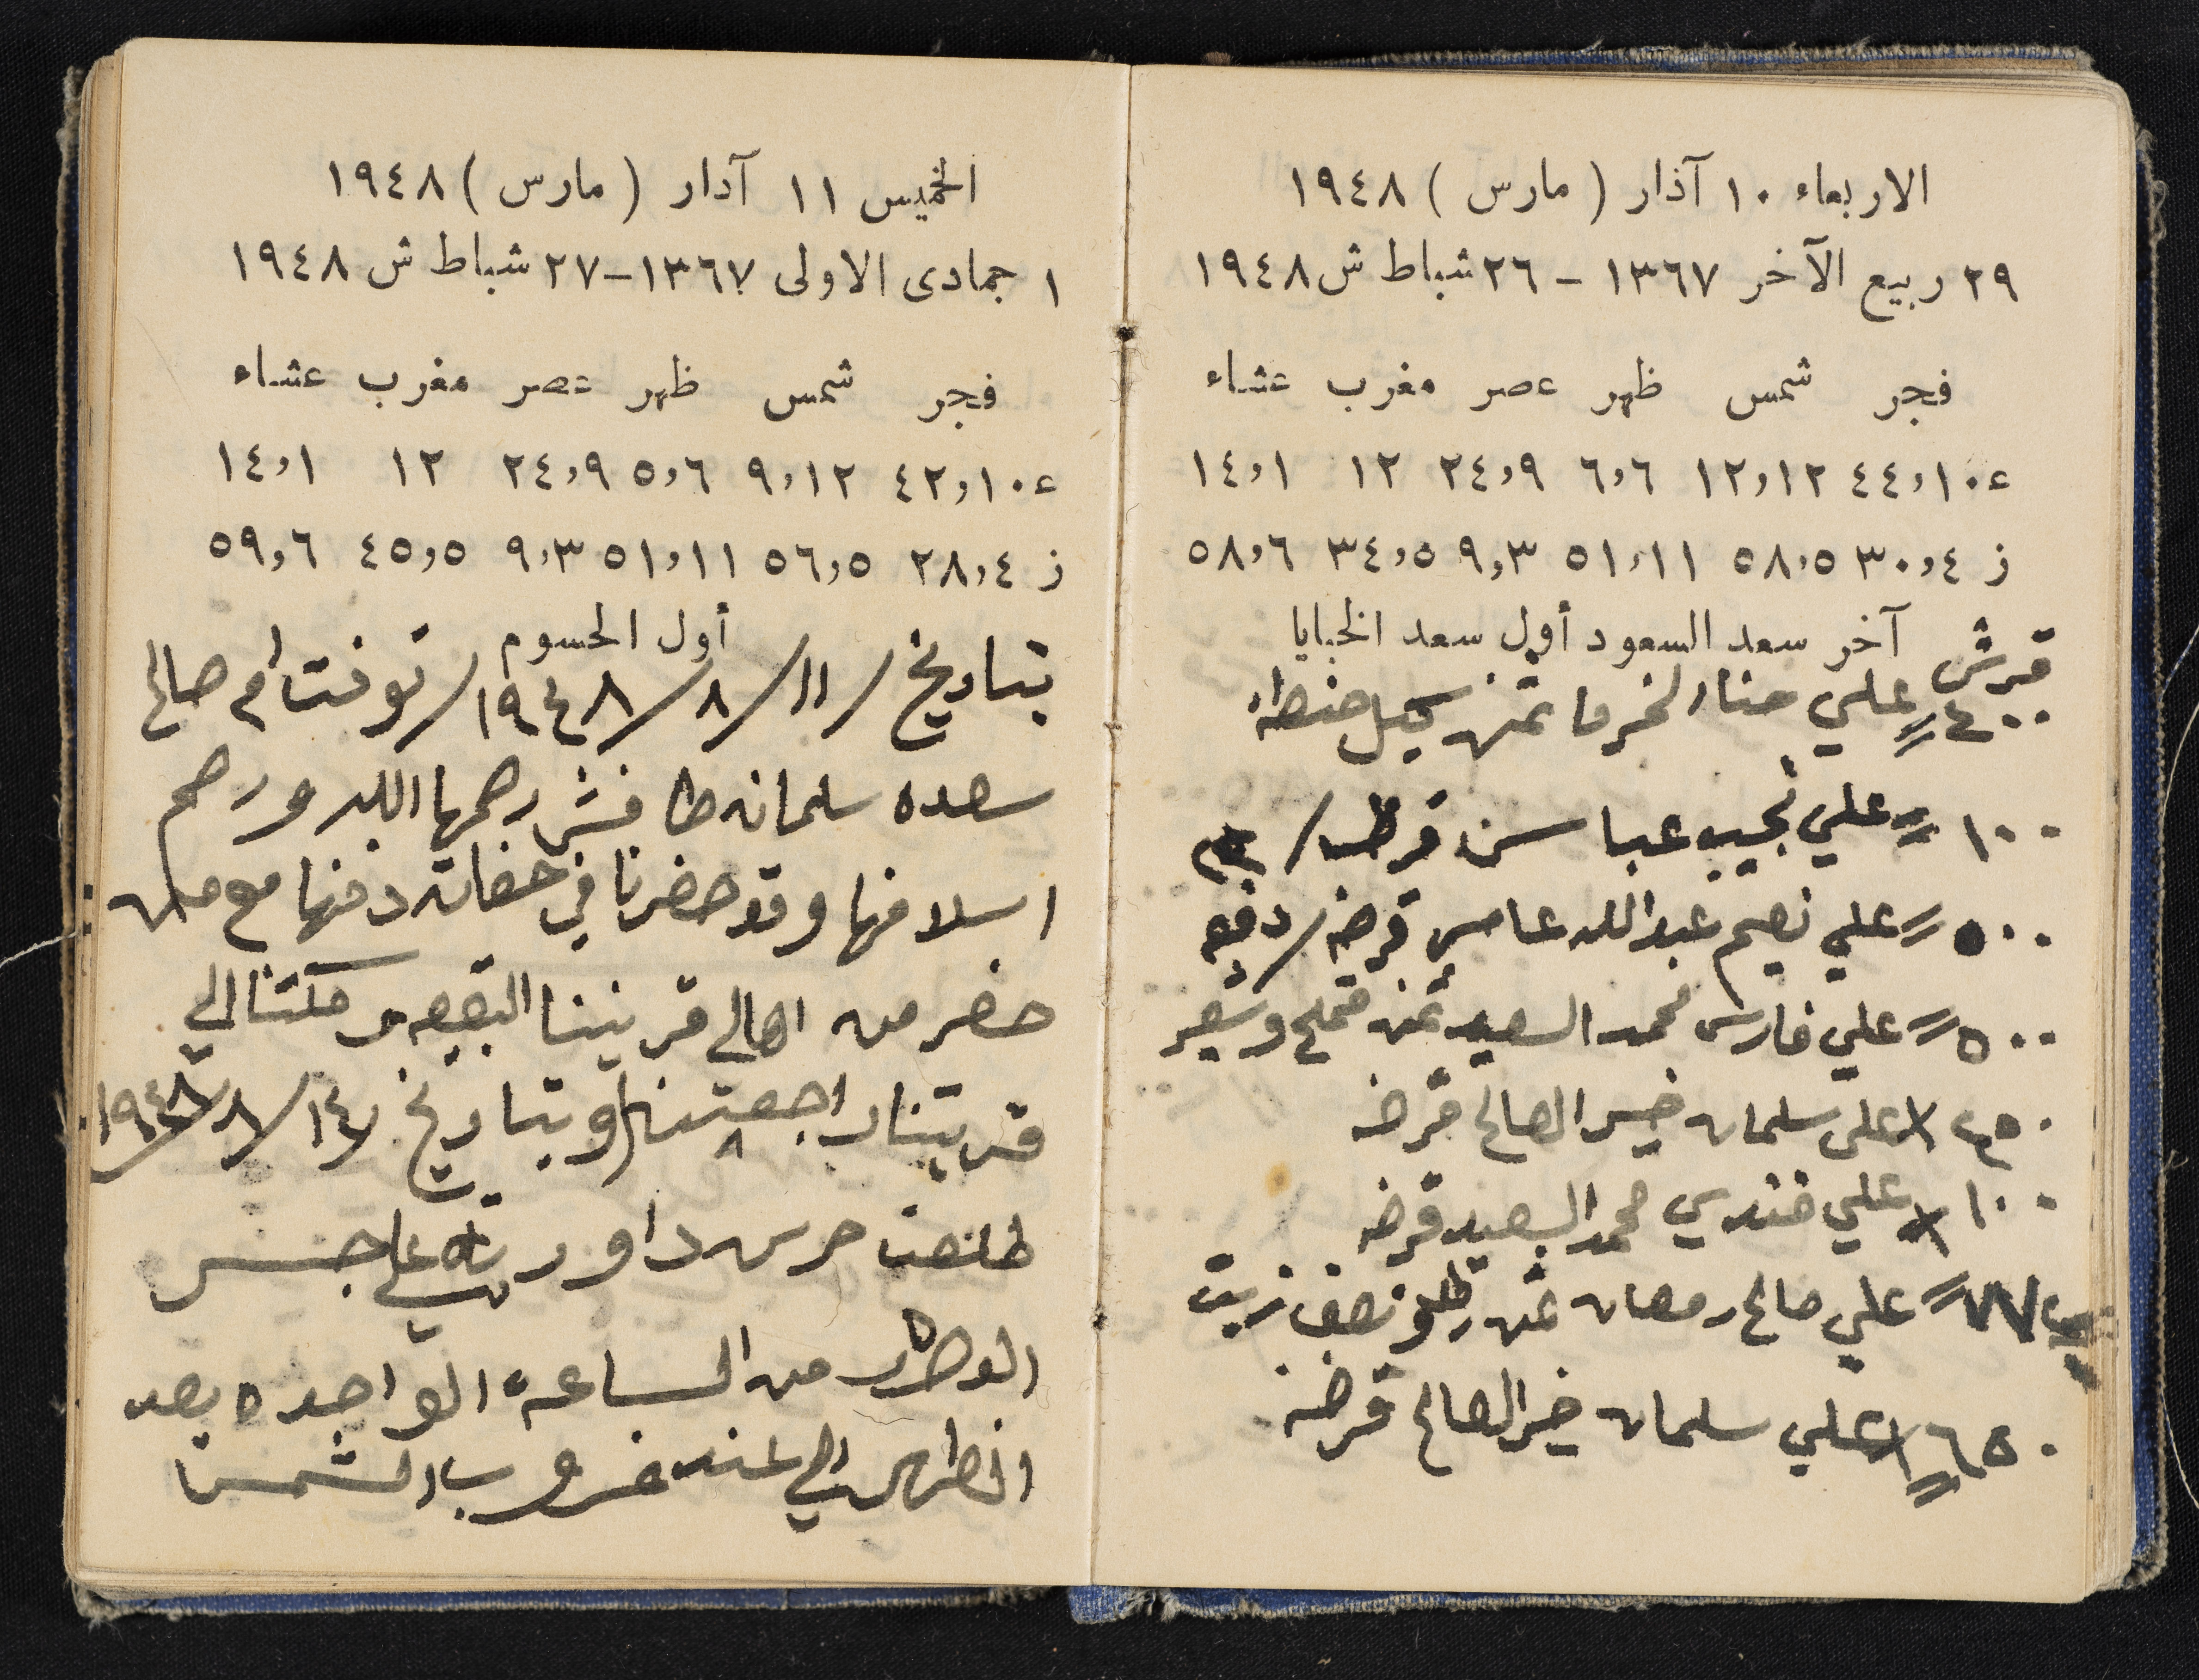 الاربعاء ١٠ آذار ( مارس ) ١٩٤٨
٢٩ ربيع الآخر ١٣٦٧ - ٢٦ شباط ش ١٩٤٨
فجر شمس ظهر عصر مغرب عشاء
ع ٤٤,١٠ ١٢,١٢ ٦,٦ ٢٤,٩ ١٢ ١٤,١
ز ٣٠,٤ ٥٨,٥ ٥١,١١ ٩,٣ ٣٤,٥ ٥٨,٦
آخر سعد السعود أول سعد الخبايا
قرش
٤٠٠ علي حنا الخرما ثمن كيل حنطه
١٠٠ علي نجيب عباسن قرطه /
٥٠٠ علي نعيم عبدالله عاصي قرضه / دفعه
٥٠٠ علي فارس محمد السعيد ثمن قمح وشعير
٢٥٠ علي سلمان خير الصالح قرضه
١٠٠ علي فندي محمد السعيد قرضه
٧٧ علي صالح رمضان ثمن رطل ونصف زيت
٦٥٠ علي سلمان خير الصالح قرضه
الخميس ١١ آدار ( مارس ) ١٩٤٨
١ جمادى الاولى ١٣٦٧ - ٢٧ شباط ش ١٩٤٨
فجر شمس ظهر عصر مغرب عشاء
ع ٤٢,١٠ ٩,١٢ ٥,٦ ٢٤,٩ ١٢ ١٤,١
ز ٢٨,٤ ٥٦,٥ ٥١,١١ ٩,٣ ٤٥,٥ ٥٩,٦
أول الحسوم
بتاريخ / ١١ / ٨ / ١٩٤٨ / توفت ام صالح
سعده سلمانه طافش رحمها الله ورحم
اسلافها وقد حضرنا في حفلة دفنها مع من
حضر من اهالي قريتنا البقيعه وكلتنا الي
قريتنا راجعتنا وبتاريخ ١٤ / ٨ / ١٩٤٨
طلعت حرس داوريه علي جسر
من الساعة الواحده بعد
الظهر الي عند غروب الشمس